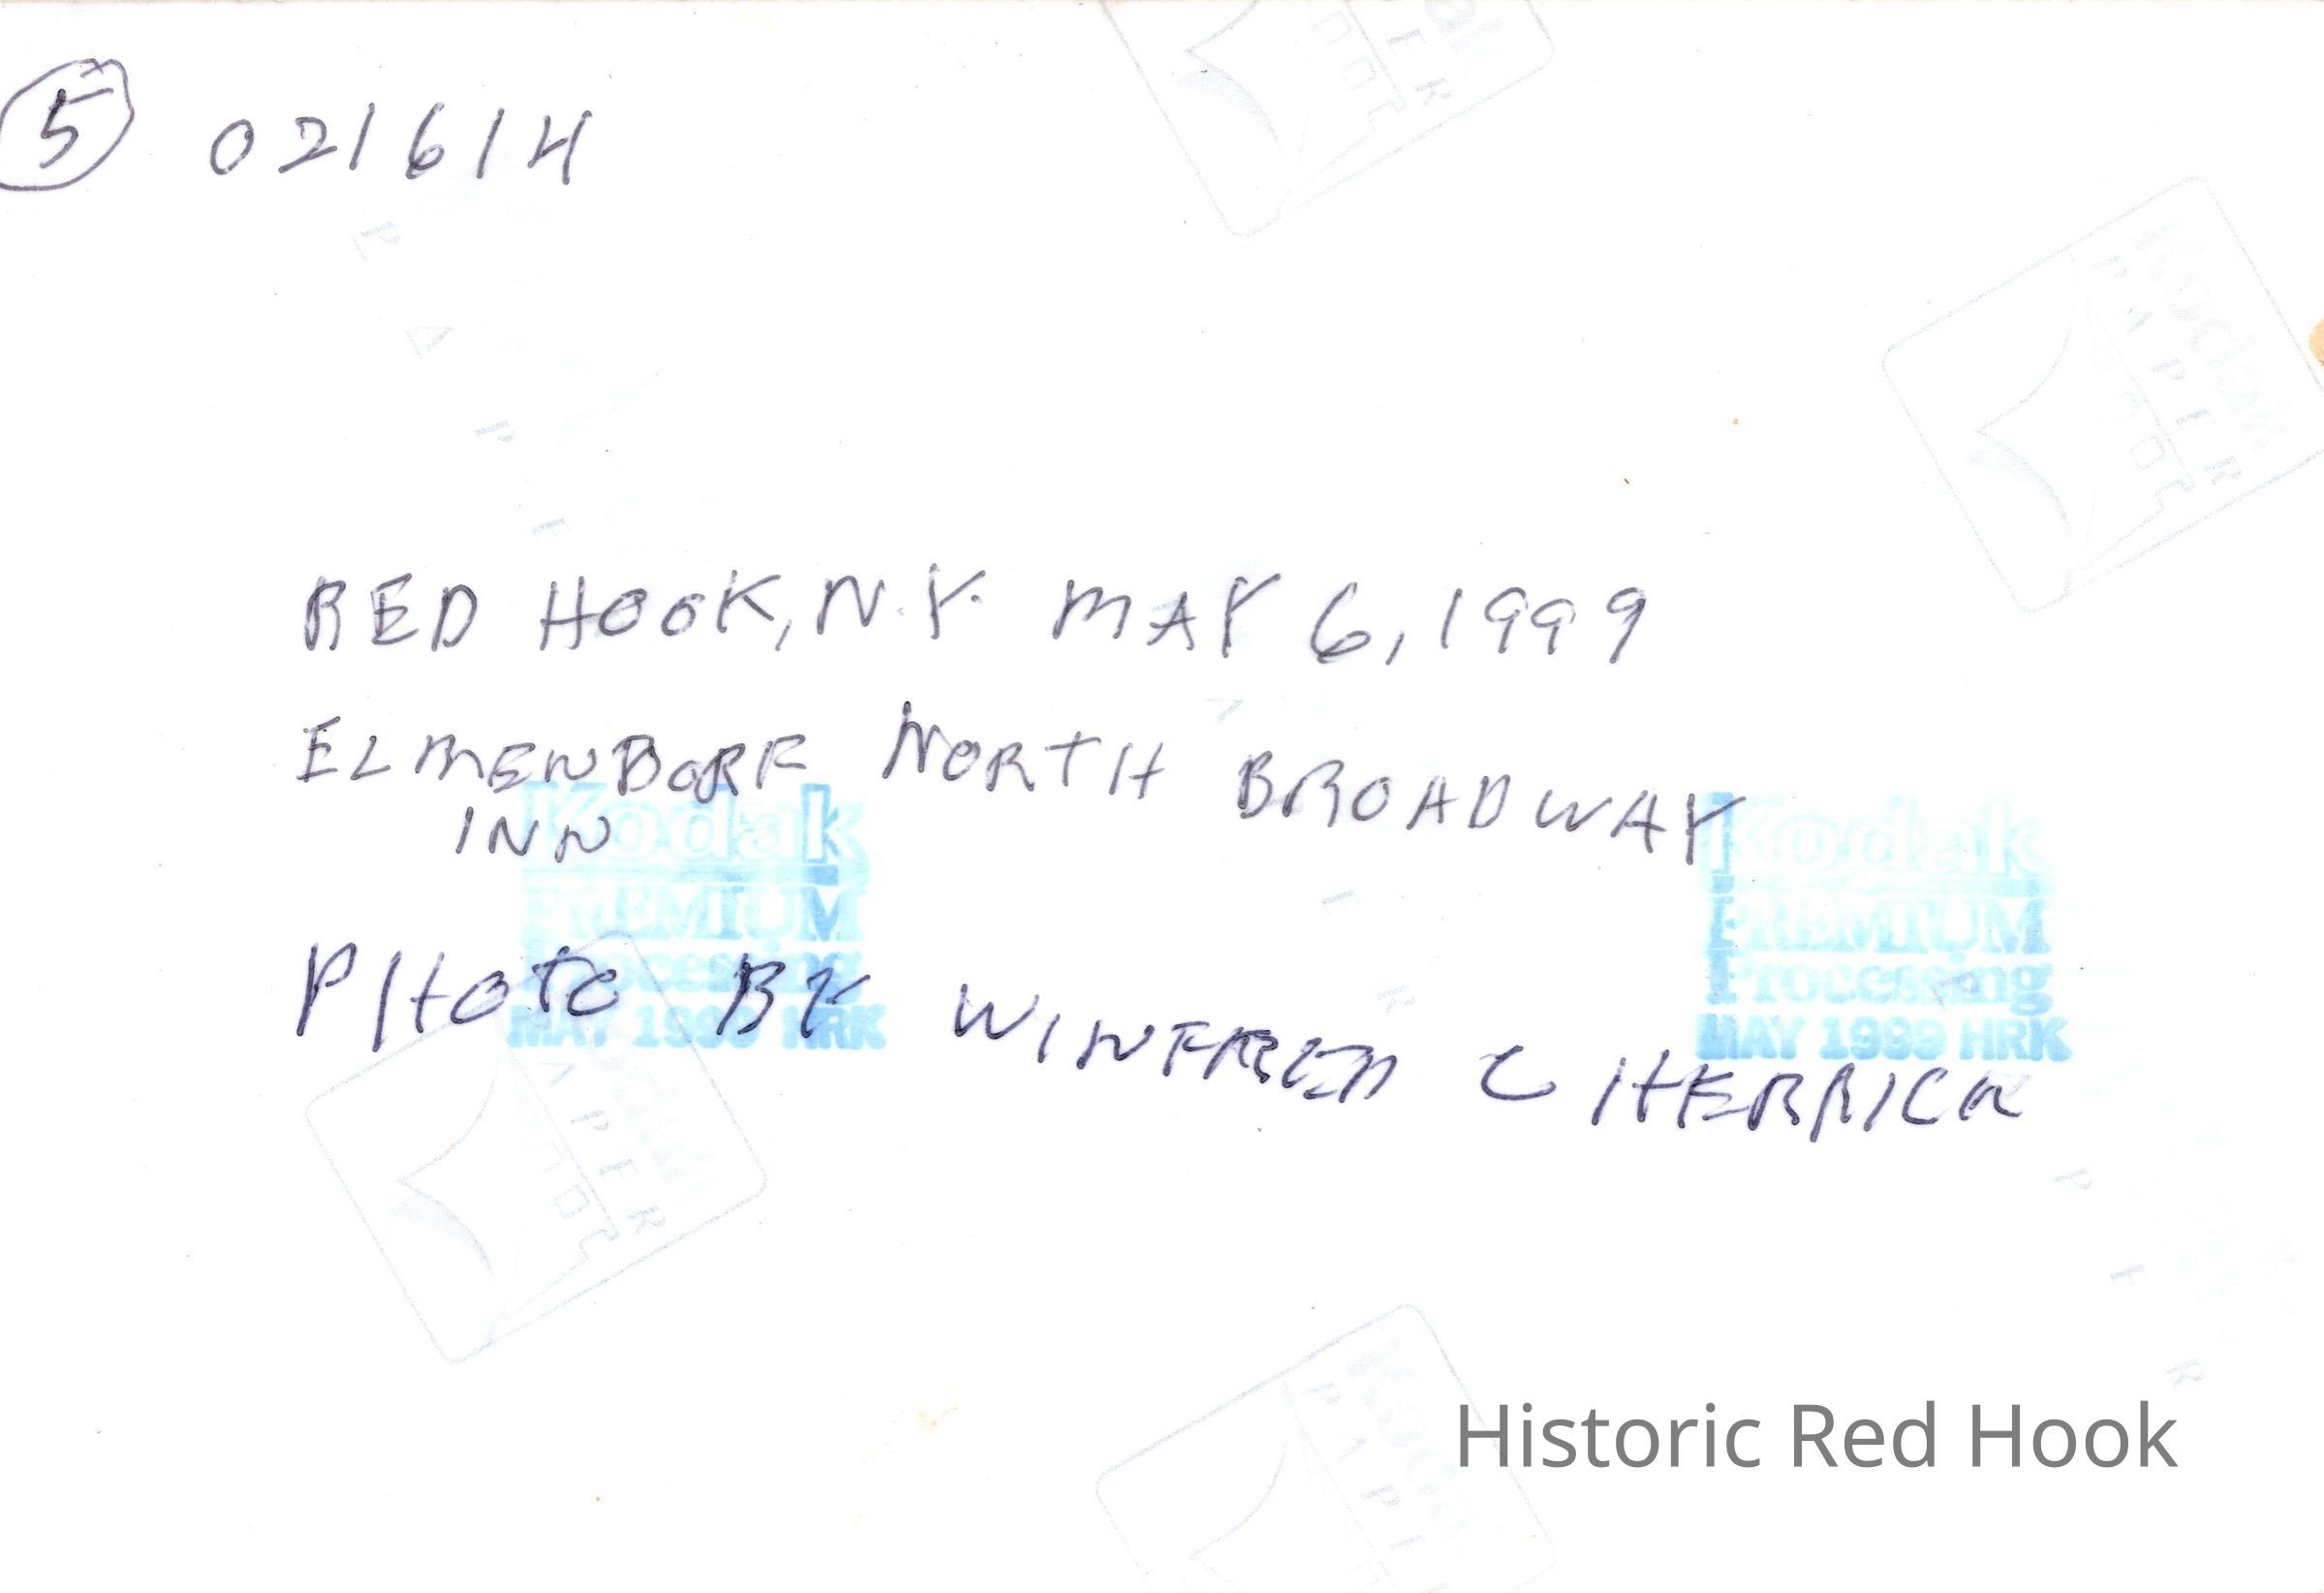 5 021614
RED HOOK, N.Y. MAY 6, 1999
ELMENDORF NORTH BROADWAY
INN
Kodak Kodak
PREMIUM PREMIUM
Processing Processing
MAY 1999 HRK MAY 1999 HRK
PHOTO BY WINFRED C HERRICK
Kodak
PAPER
Historic Red Hook